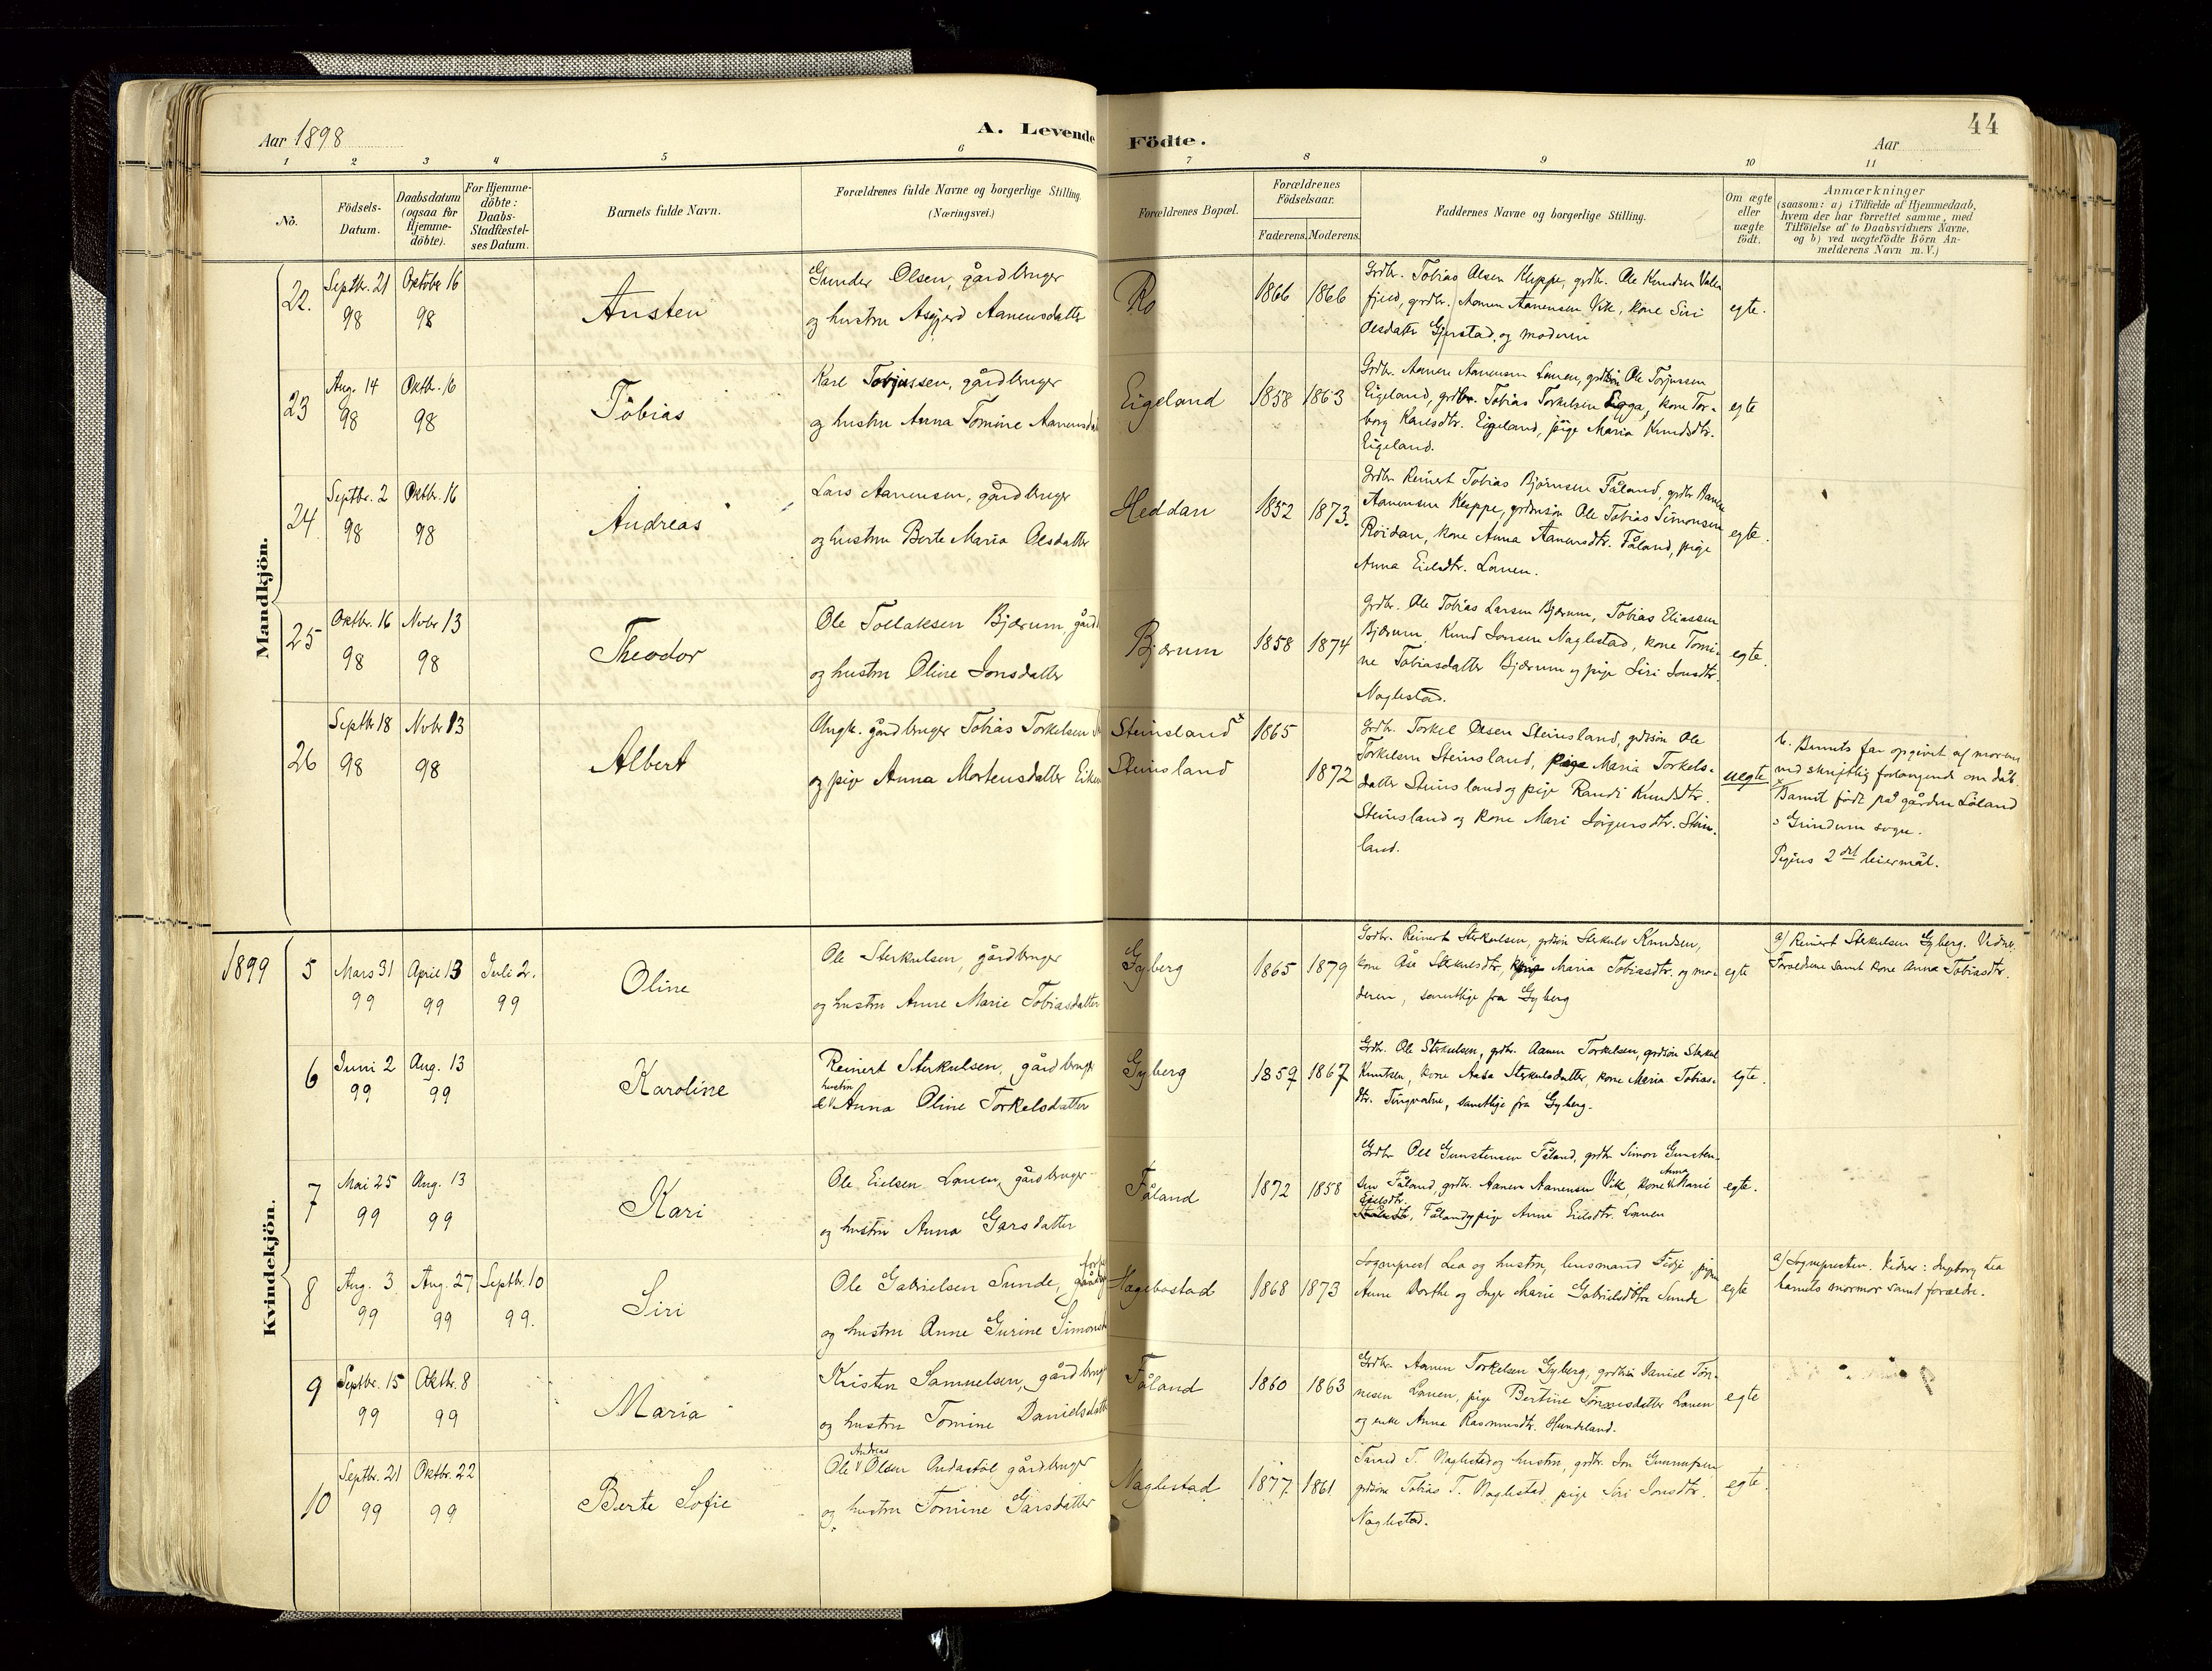 44
Aar 1898
A. Levende Födte.
Aar
1 2 3 4 5 6 7 8 9 10 11
No.
Födsels-
Datum.
Daabsdatum
(ogsaa for
Hjemme-
döbte).
For Hjemme-
döbte:
Daabs-
Stadfæstel-
ses Datum.
Barnets fulde Navn.
Forældrenes fulde Navne og borgerlige Stilling.
(Næringsvei.)
Forældrenes Bopæl.
Forældrenes
Födselsaar.
Faderens. Moderens.
Faddernes Navne og borgerlige Stilling.
Om ægte
eller
uægte
födt.
Anmærkninger
(saasom: a) i Tilfælde af Hjemmedaab,
hvem der har forrettet samme, med
Tilföielse af to Daabsvidners Navne,
og b) ved uægtefödte Börn An-
melderens Navn m. V.)
Mandkjön.
22.
Septbr. 21
98
Oktobr 16
98
Austen
Gunder Olsen, gårdbruger
og hustru Asgjerd Aanensdatter
Ro
1866 1866
Grdbr. Tobias Olsen Kleppe, grdbr. Ole Knudsen
fjeld, grdbr. Aanen Aanensen Vik, kone Siri
Olsdatter Gjerstad, og moderen
egte.
23
Aug. 14
98
Oktbr. 16
98
Tobias
Karl Torjussen, gårdbruger
og hustru Anna Tomine
Eigeland
1858 1863
Grdbr. Aanen Aanensen Lauen, grdbr. Ole Torjussen
Eigeland, grdbr. Tobias Torkelsen kone Tor-
borg Karlsdtr. Eigeland, pige Maria Knudsdtr.
Eigeland.
egte
24
Septbr. 2
98
Oktbr. 16
98
Andreas
Lars Aanensen, gårdbruger
og hustru Berte Maria Olsdatter
Heddan
1852 1873.
Grdbr Reinert Tobias Bjørnsen Fåland, grdbr Aanen
Aanensen Kleppe, grdmsøn Ole Tobias Simonsen
Røidan, kone Anna Aanensdtr. Fåland, pige
Anna Eielsdtr. Lauen.
egte.
25
Oktbr. 16
98
Novbr 13
98
Theodor
Ole Tollaksen Bjærum, gård
og hustru Oline Jonsdatter
Bjærum
1858 1874
Grdbr. Ole Tobias Larsen Bjærum, Tobias Eliassen
Bjærum, Knud Jonsen Naglestad, kone Tomi-
ne Tobiasdatter Bjærum og pige Siri Jonsdtr.
Naglestad.
egte.
26
Septbr 18
98
Novbr 13
98
Albert
Ungk. gårdbruger Tobias Torkelsen
og pige Anna Mortensdatter
Steinsland x
Steinsland
1865
1872
Grdbr. Torkel Olsen Steinsland, grdsøn Ole
Torkelsen Steinsland, pige Maria Torkels-
datter Steinsland og pige Randi Knudsdtr.
Steinsland og kone Mari Jørgensdtr. Stein-
land.
uegte
b. Barnets far opgivet af moren
ved skriftlig forlangende om dåb.
x Barnet født på gården Løland
i Grindum sogn.
Pigens 2det leiermål.
1899
Kvindekjön.
5
Mars 31
99
April 13
99
Juli 2.
99
Oline
Ole Sterkulsen, gårdbruger
og hustru Anne Marie Tobiasdatter
Gyberg
1865 1879
Grdbr. Reinert Sterkulsen, grdsøn Sterkuls Knudsen,
kone Åse Sterkulsdtr, Maria Tobiasdtr. og mo-
deren, samtlige fra Gyberg
egte
a/ Reinert Sterkulsen Gyberg. Vidner,
Forældrene samt kone Anna Tobiasdtr.
6
Juni 2
99
Aug. 13
99
Karoline
Reinert Sterkulsen, gårdbruger
hustru
Anna Oline Torkelsdatter
Gyberg
1859 1867
Grdbr. Ole Sterkulsen, grdbr. Aanen Torkelsen, grdsøn Sterkul
Knutsen, kone Aasa Sterkulsdatter, kone Maria Tobias-
dtr. Tingvatne, samtlige fra Gyberg.
egte.
7
Mai 25
99
Aug. 13
99
Kari
Ole Eielsen Lauen, gårdbruger
og hustru Anna Garsdatter
Fåland
1872 1858
Grdbr Ole Gunstensen Fåland, grdbr Simon Gunsten-
sen Fåland, grdbr. Aanen Aanensen Vik, kone Anna Marie
Eielsdtr.
Fåland, pige Anne Eielsdtr. Lauen
egte.
8
Aug. 3
99
Aug. 27
99
Septbr. 10
99.
Siri
Ole Gabrielsen Sunde,
og hustru Anne Gurine
Hægebostad
1868 1873
Sogneprest Lea og hustru, lensmand
Anne Dorthe og Inger Marie Gabrielsdøtre Sunde
egte
a/ Sognepresten. Vidner: Ingborg Lea
barnets mormor samt forældre.
9
Septbr. 15
99
Oktbr. 8
99
Maria
Kristen Samuelsen, gårdbruger
og hustru Tomine Danielsdatter
Fåland
1860 1863
Grdbr. Aanen Torkelsen Gyberg, grdbr. Daniel Tøn-
nesen Lauen, pige Bertine Tønnesdatter Lauen
og enke Anna Rasmusdtr. Hundeland.
egte
10
Septbr. 21
99
Oktbr. 22
99
Berte Sofie
Andreas
Ole Olsen gårdbruger
og hustru Tomine Garsdatter
Naglestad
1877 1861
T. Naglestad og hustru, grdbr. Jon
grdsøn Tobias T. Naglestad pige Siri Jonsdtr.
Naglestad.
egte.